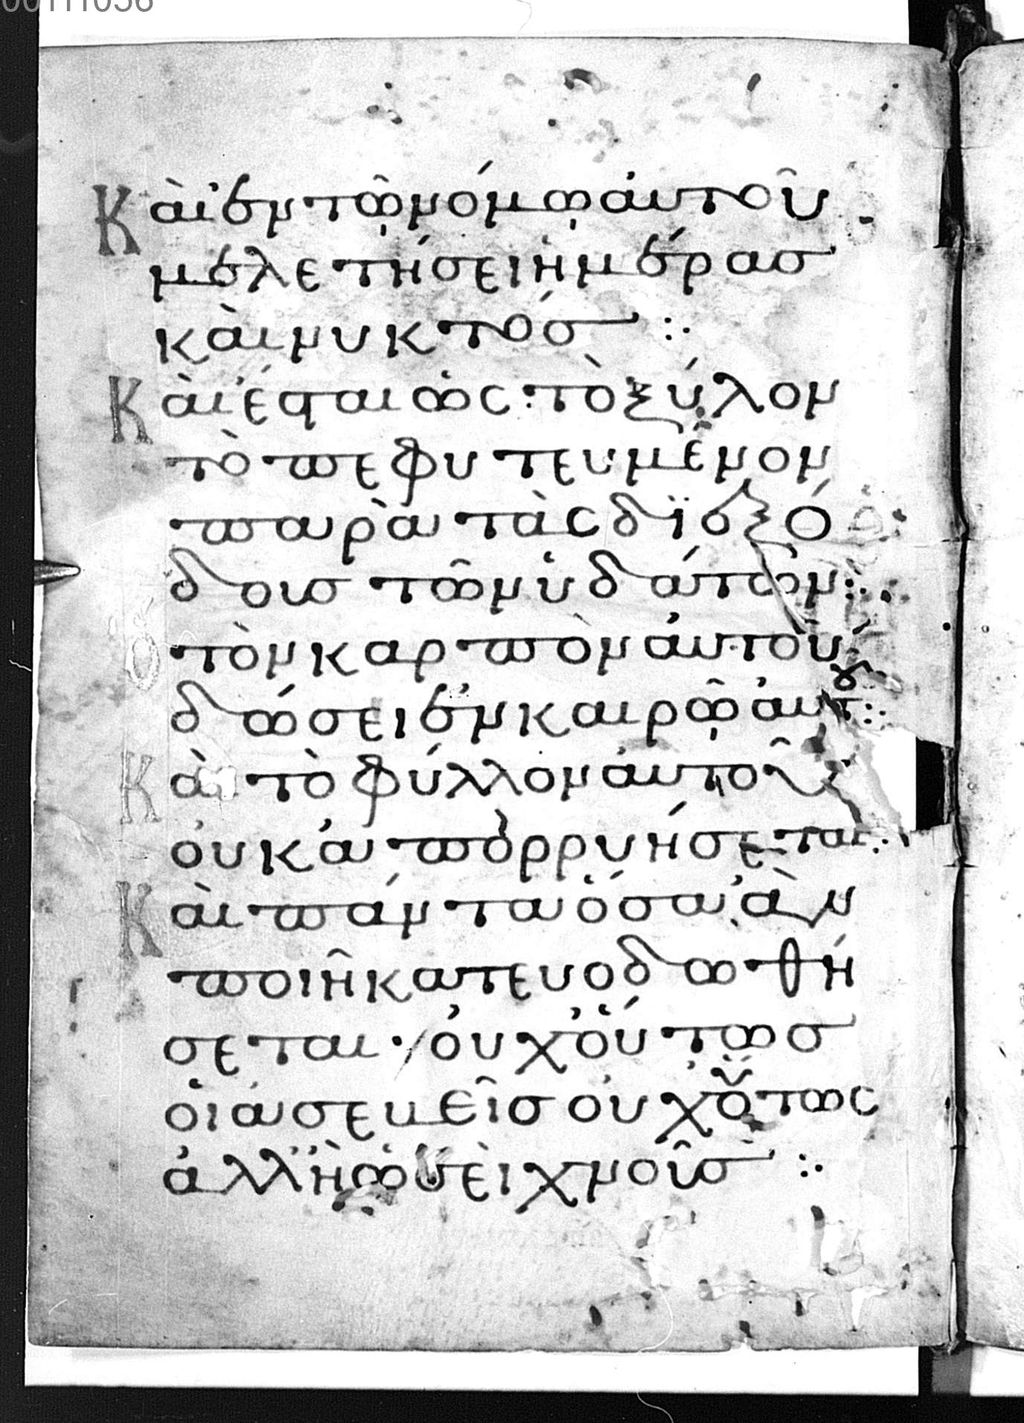 00111056
Καὶ ἐν τῷ νόμῳ αὐτοῦ
μελετήσει ἡμέρας
καὶ νυκτός :·
Καὶ ἔσται ὡς τὸ ξύλον
τὸ πεφυτευμένον
παρὰ τὰς διεξό
δοις τῶν ὑδάτων :·
τὸν καρπὸν αὐτοῦ
δώσει ἐν καιρῷ αὐτοῦ :·
Κὰ τὸ φύλλον αὐτοῦ
οὐκ ἀπορρυήσεται :·
Καὶ πάντα ὅσα ἂν
ποιῇ κατευοδωθή
σεται · οὐχ οὕτως
οἱ ἀσεβεῖς οὐχ οὕτως
ἀλλ' ἢ ὡσεὶ χνοῦς :·